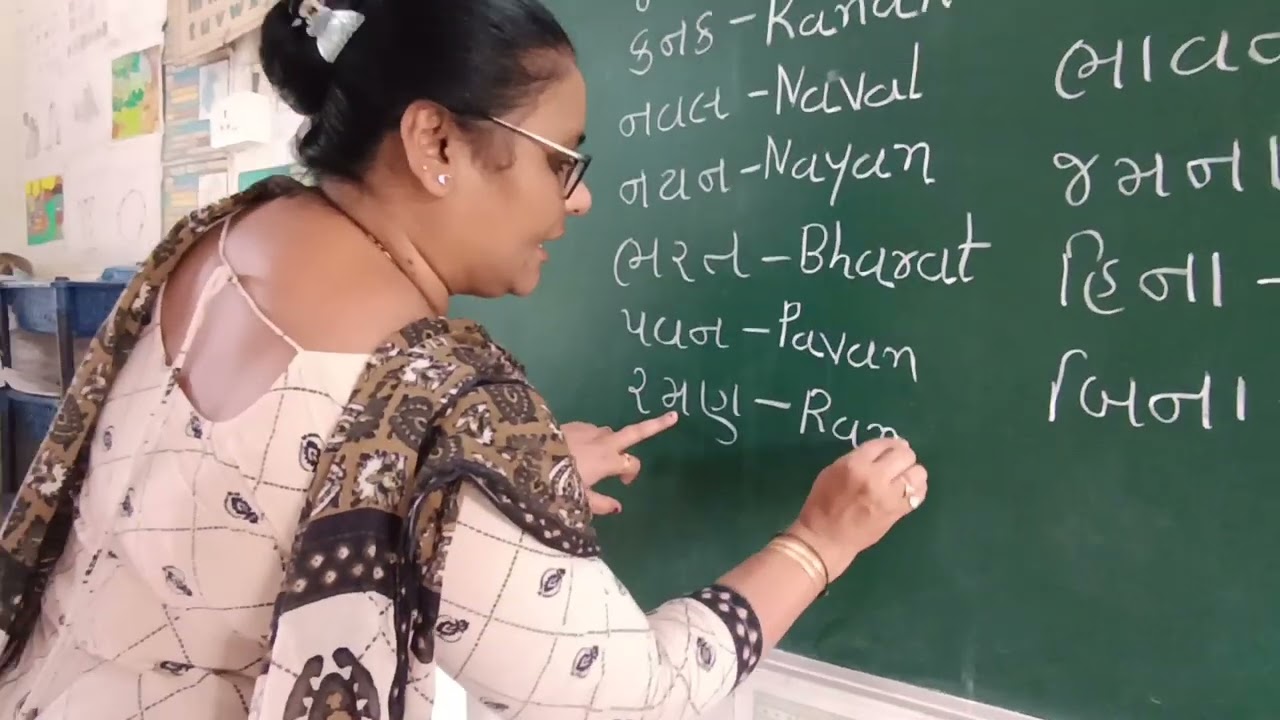 કનક - Kanak
નવલ - Naval
નયન - Nayan
ભરત - Bharat
પવન - Pavan
રમણ - Ram
જમના
હિના -
બિના